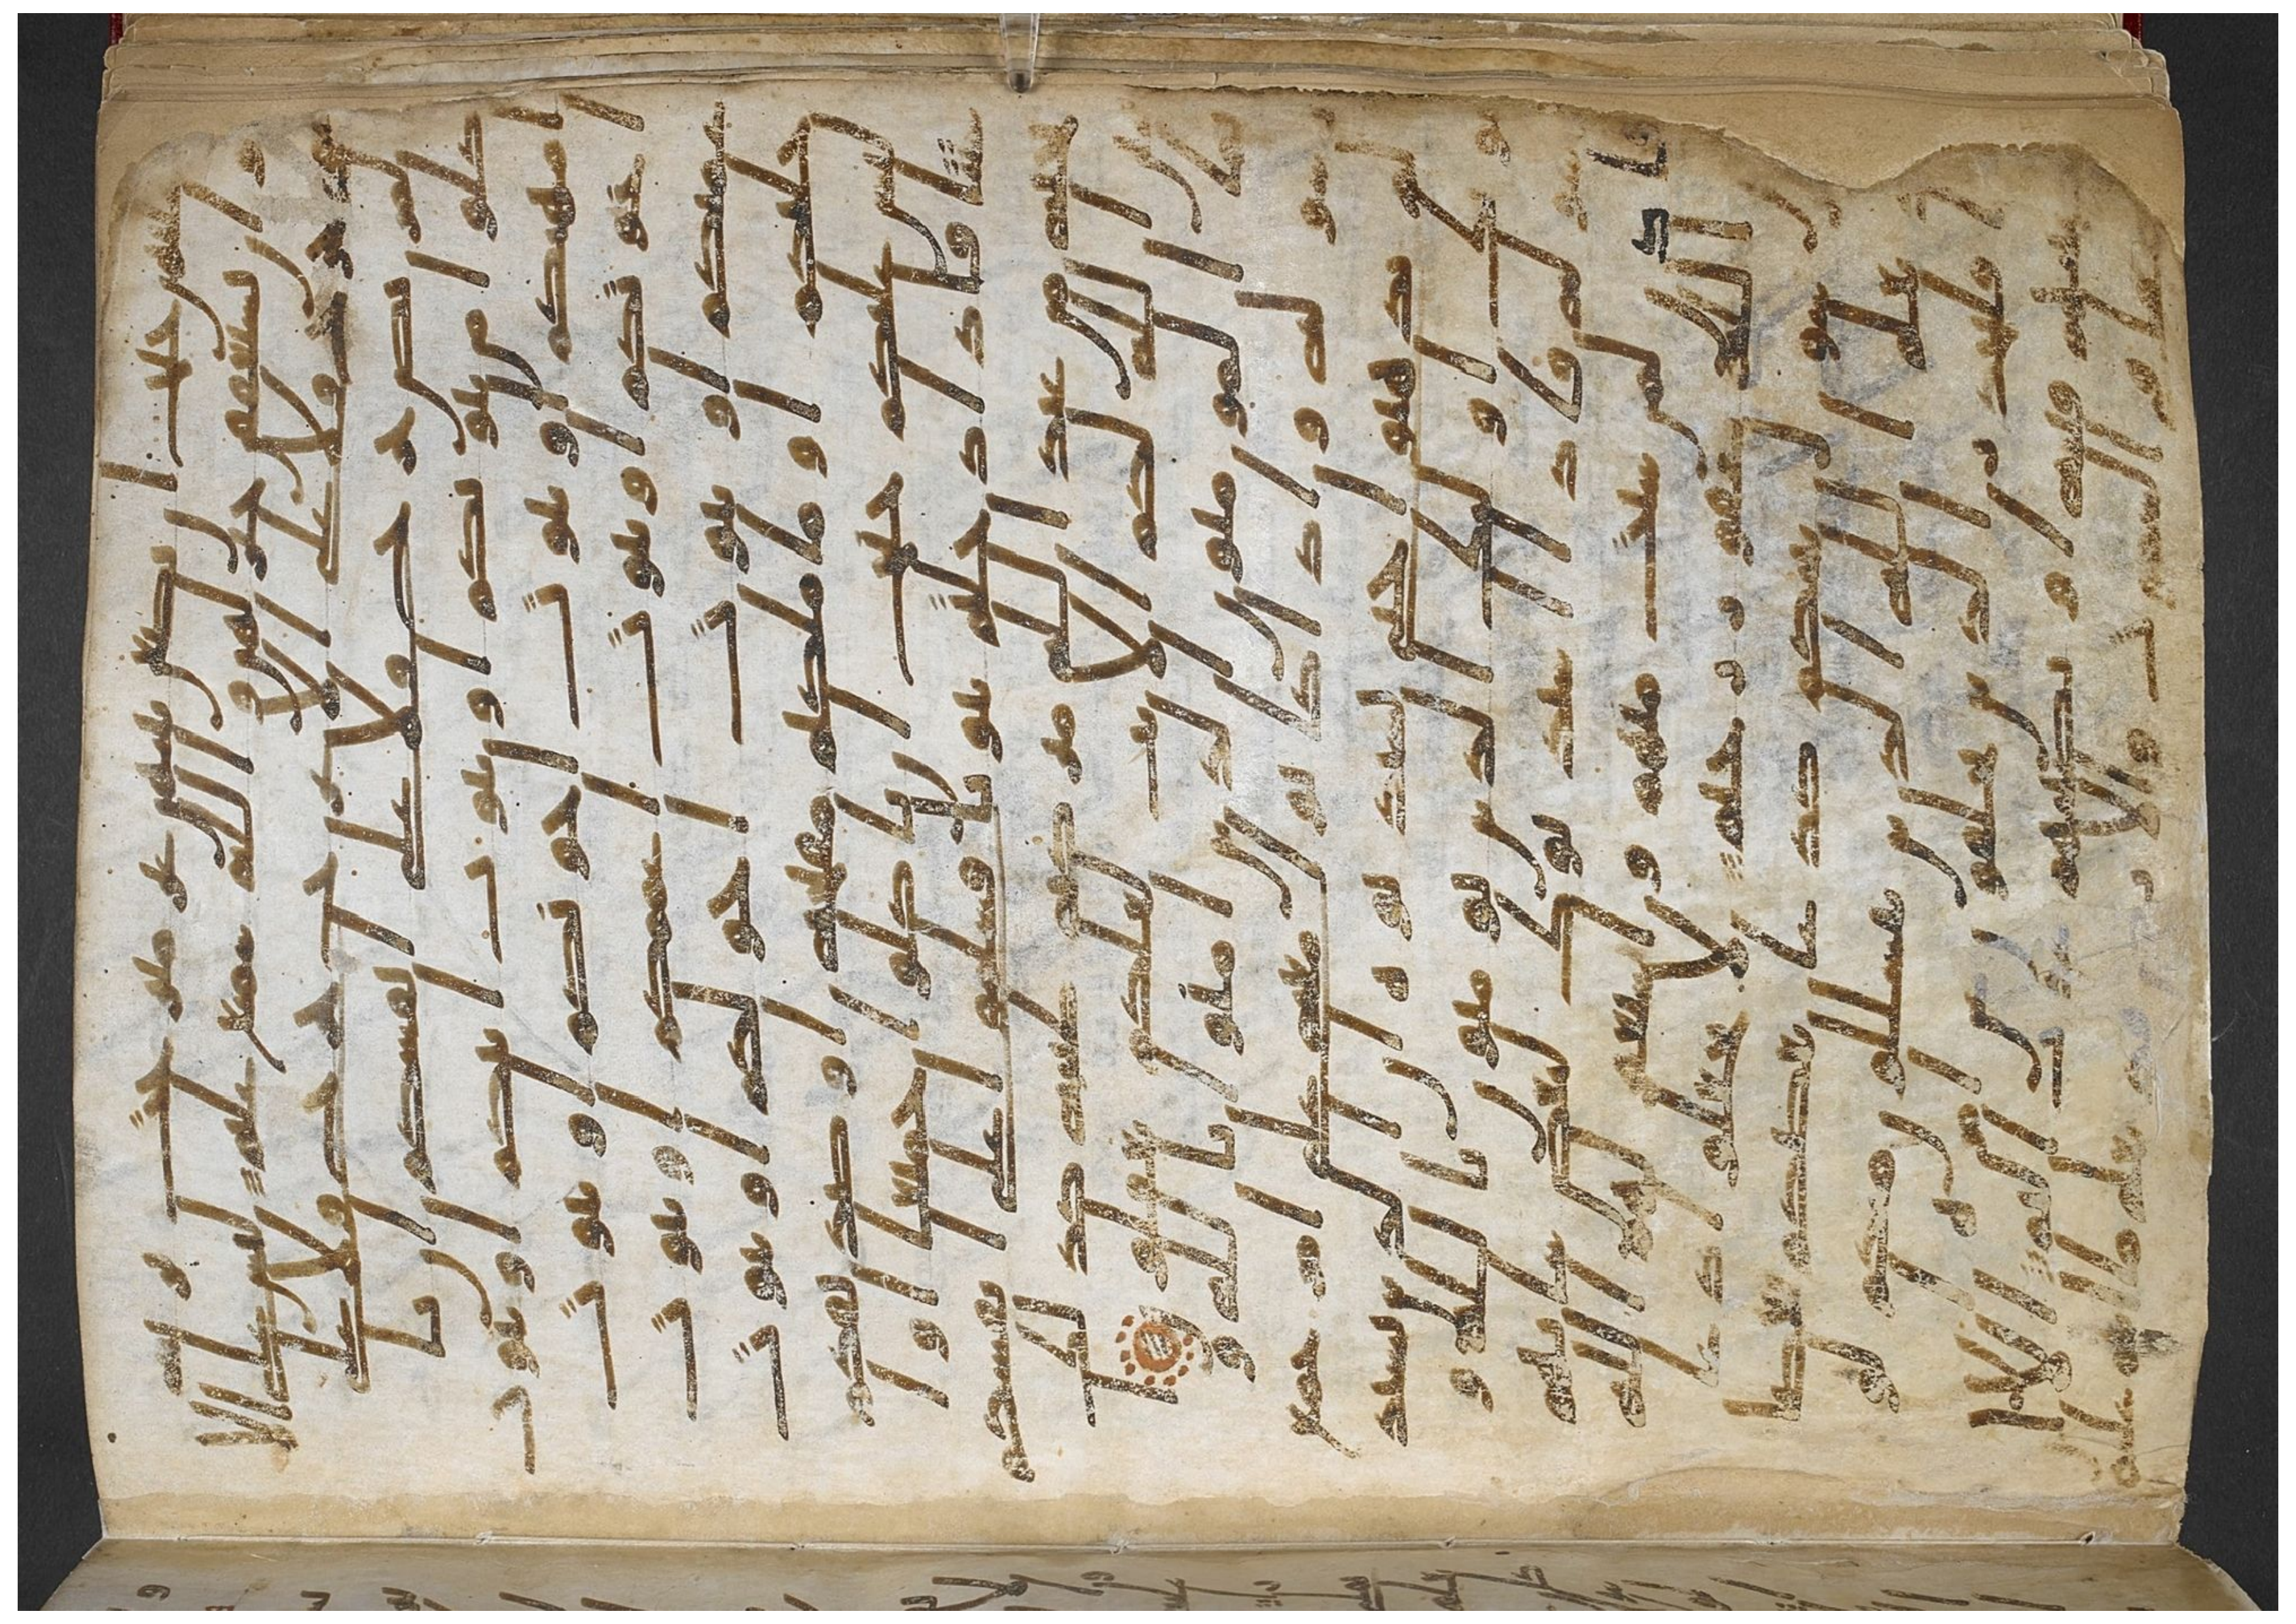 ن ثيبهن غير متبرجت بزينة وان
يستعففن خير لهن والله سميع عليم ليس على الا
عمى حرج ولا على الاعرج حرج ولا على ا
لمريض حرج ولا على انفسكم ان تا
كلوا من بيوتكم او بيوت ابائكم او بيوت
امهتكم او بيوت اخونكم او بيوت
اخوتكم او بيوت اعممكم او بيوت
عمتكم او بيوت اخولكم او بيوت
خلتكم او ما ملكتم مفتحه او صديقكم
ليس عليكم جنح ان تاكلوا جميعا او ا
شتتا فاذا دخلتم بيوتا فسلموا على انفسكم
تحية من عند الله مبركة طيبة كذلك
يبين الله لكم الايت لعلكم تعقلون
انما المومنون الذين امنوا بالله و
رسوله واذا كانوا معه على امر جمع
لم يذهبوا حتى يستذنوه ان الذين يستذ
نونك اوليك الذين يومنون بالله و
رسوله فاذا استذنوك لبعض شانهم فا
ذن لمن شيت منهم واستغفر لهم الله
ان الله غفور رحيم لا تجعلوا دعا ا
لرسول بينكم كدعا بعضكم بعضا
قد يعلم الله الذين يتسللون منكم لو
اذا فليحذر الذين يخلفون عن امره ان
تصيبهم فتنة او يصيبهم عذاب اليم الا ان لله
ما في السموت والارض قد يعلم ما انتم عليه